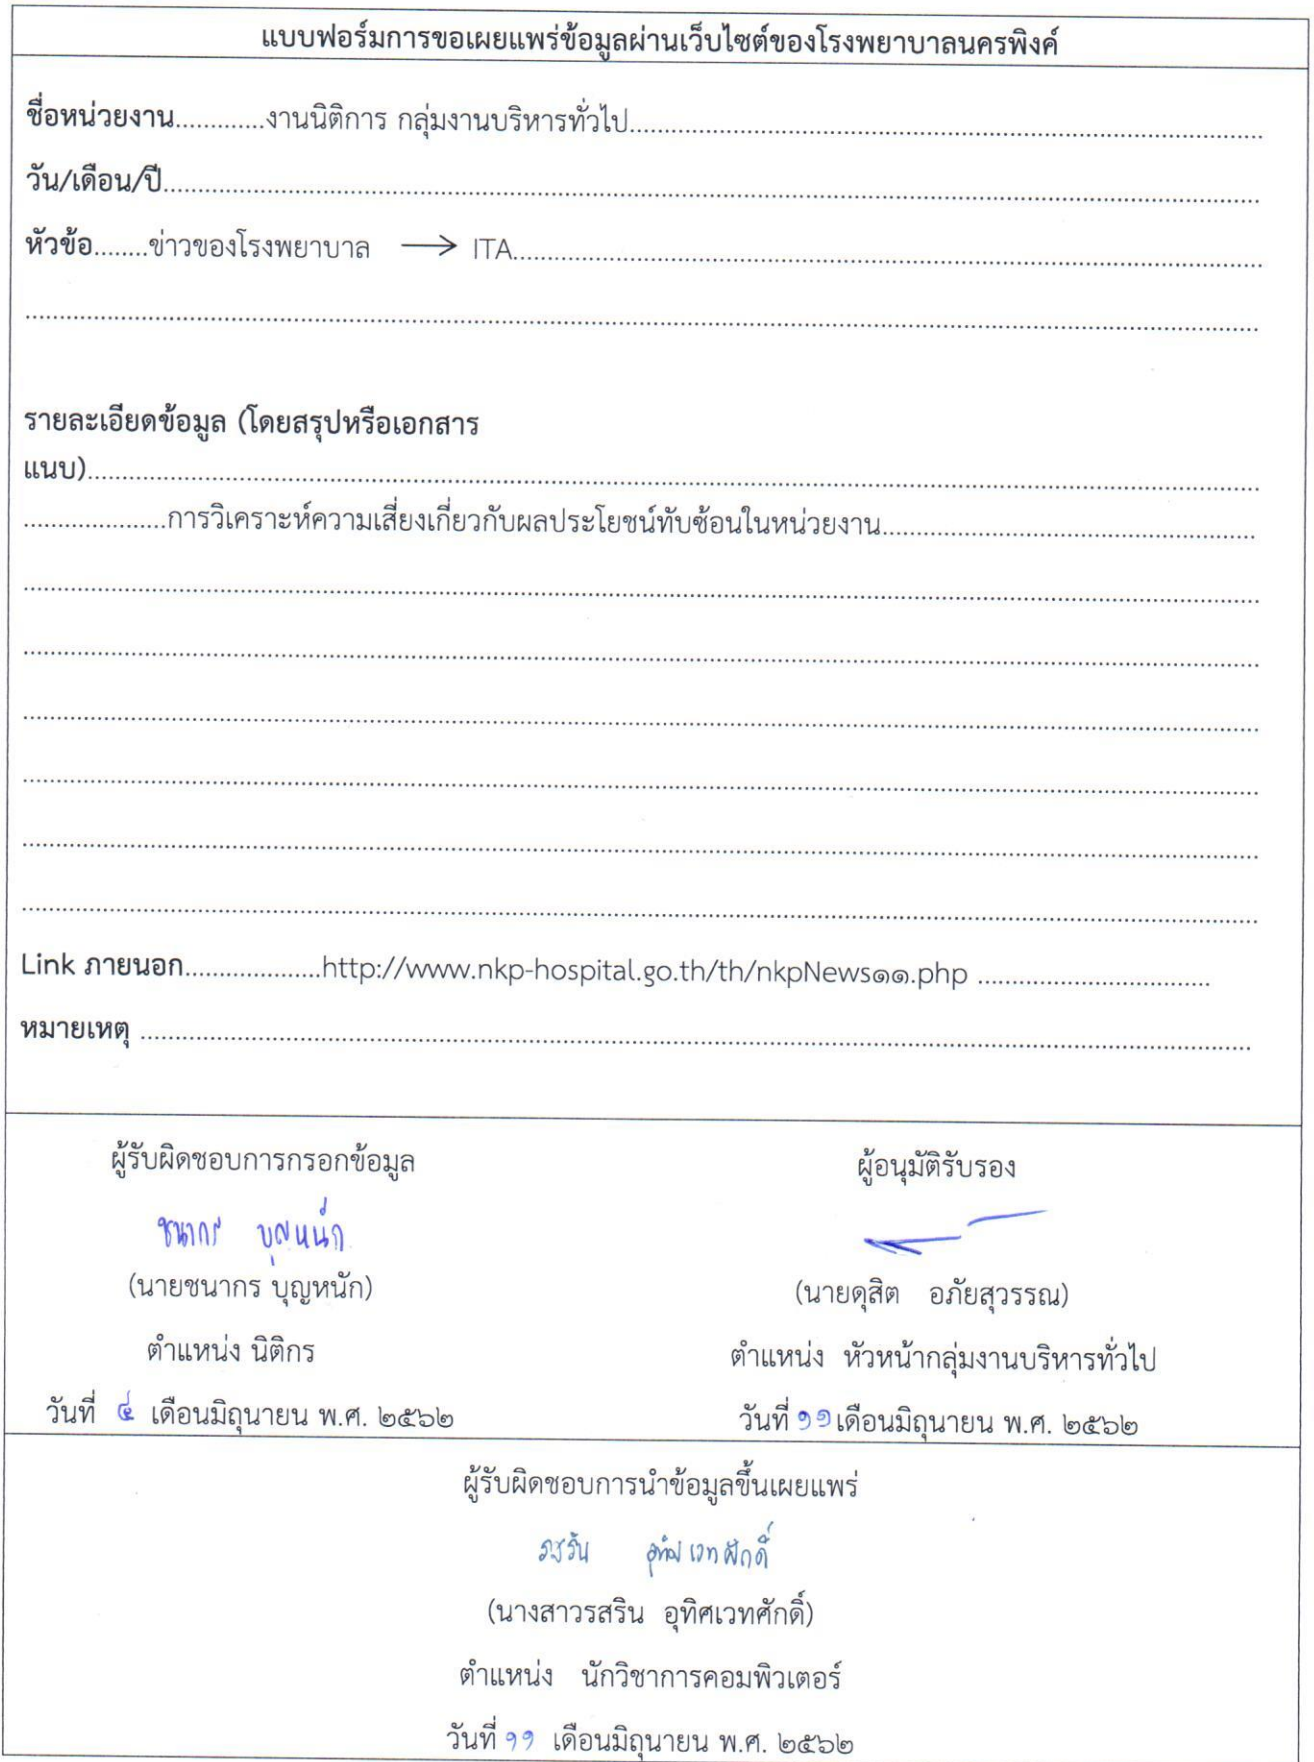 แบบฟอร์มการขอเผยแพร่ข้อมูลผ่านเว็บไซต์ของโรงพยาบาลนครพิงค์
ชื่อหน่วยงาน.............งานนิติการ กลุ่มงานบริหารทั่วไป..........................................................................................
วัน/เดือน/ปี..........................................................................................
หัวข้อ........ข่าวของโรงพยาบาล → ITA..........................................................................................
..........................................................................................
รายละเอียดข้อมูล (โดยสรุปหรือเอกสาร
แนบ)..........................................................................................
.....................การวิเคราะห์ความเสี่ยงเกี่ยวกับผลประโยชน์ทับซ้อนในหน่วยงาน.......................................................
..........................................................................................
..........................................................................................
..........................................................................................
..........................................................................................
..........................................................................................
..........................................................................................
Link ภายนอก....................http://www.nkp-hospital.go.th/th/nkpNews๑๑.php ..................................
หมายเหตุ ..........................................................................................
ผู้รับผิดชอบการกรอกข้อมูล
ชนากร บุญหนัก
(นายชนากร บุญหนัก)
ตำแหน่ง นิติกร
วันที่ ๔ เดือนมิถุนายน พ.ศ. ๒๕๖๒
ผู้อนุมัติรับรอง
(นายดุสิต อภัยสุวรรณ)
ตำแหน่ง หัวหน้ากลุ่มงานบริหารทั่วไป
วันที่ ๑๑ เดือนมิถุนายน พ.ศ. ๒๕๖๒
ผู้รับผิดชอบการนำข้อมูลขึ้นเผยแพร่
รสริน อุทิศเวทศักดิ์
(นางสาวรสริน อุทิศเวทศักดิ์)
ตำแหน่ง นักวิชาการคอมพิวเตอร์
วันที่ ๑๑ เดือนมิถุนายน พ.ศ. ๒๕๖๒